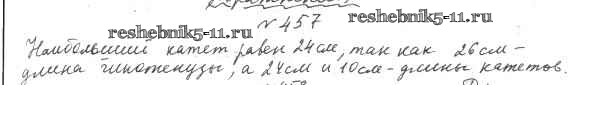 №457
reshebnik5-11.ru
reshebnik5-11.ru
Наибольший катет равен 24см, так как 26см -
длина гипотенузы, а 24см и 10см - длины катетов.